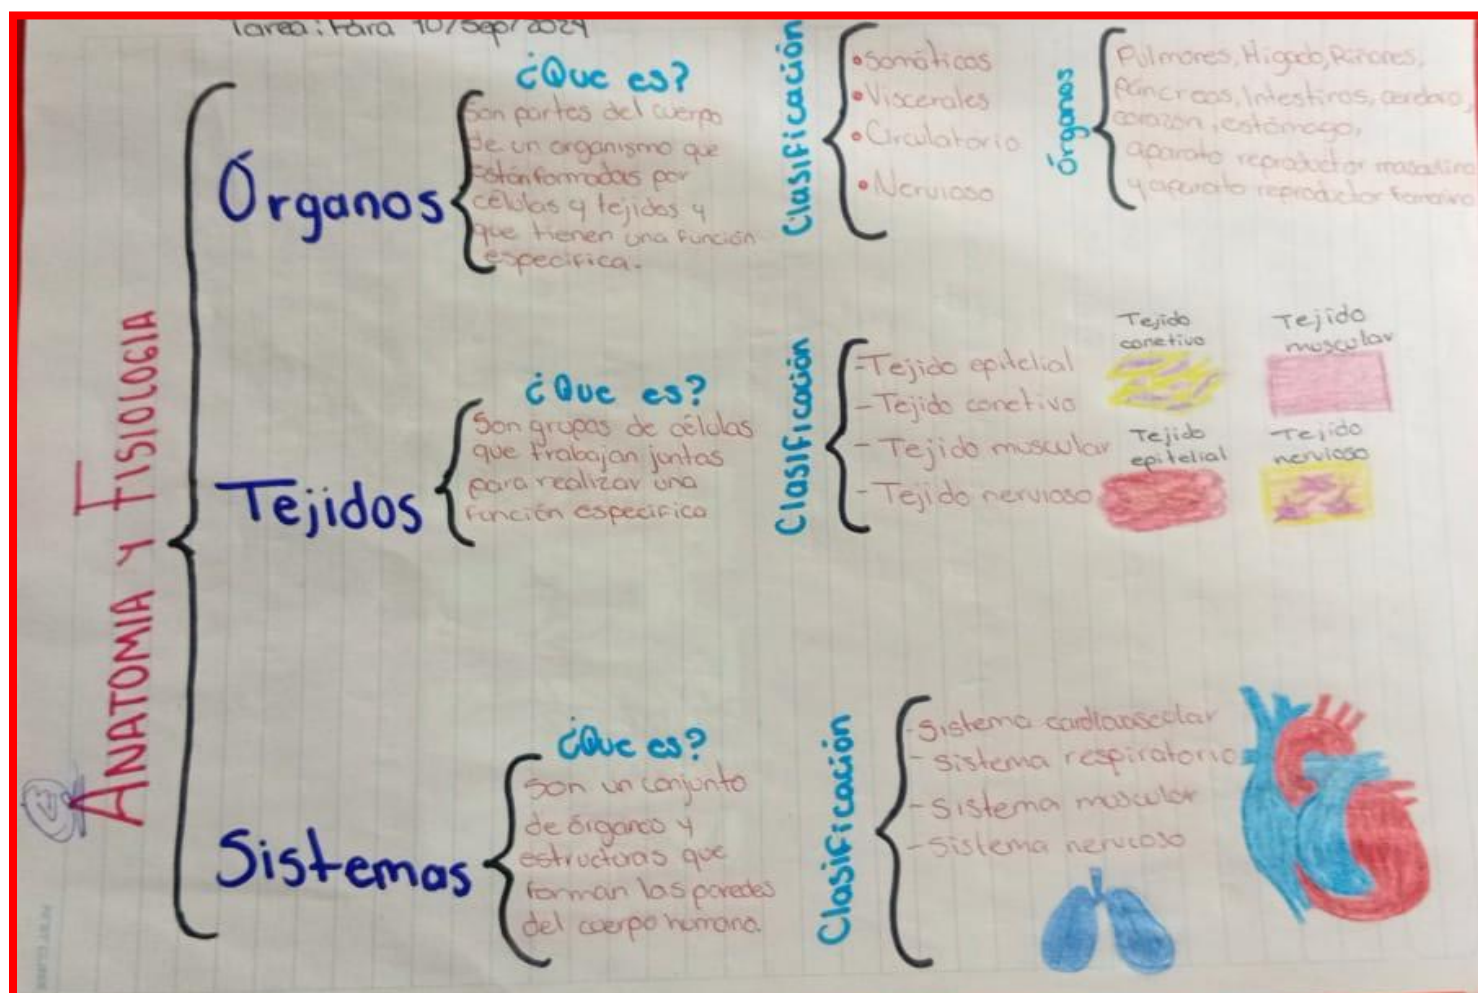 Tarea: Para 10/Sep/2024
ANATOMIA Y FISIOLOGIA
Órganos
¿Que es?
Son partes del cuerpo
de un organismo que
están formadas por
células y tejidos y
que tienen una función
especifica.
Clasificación
• Somáticos
• Viscerales
• Circulatorio
• Nervioso
Órganos
Pulmones, Higado, Riñones,
Páncreas, Intestinos, cerebro,
corazón, estómago,
aparato reproductor masculino
y aparato reproductor femenino
Tejidos
¿Que es?
Son grupos de células
que trabajan juntas
para realizar una
función especifica
Clasificación
- Tejido epitelial
- Tejido conetivo
- Tejido muscular
- Tejido nervioso
Tejido
conetivo
Tejido
muscular
Tejido
epitelial
Tejido
nervioso
Sistemas
¿Que es?
Son un conjunto
de órganos y
estructuras que
forman las paredes
del cuerpo humano.
Clasificación
- Sistema cardiovascular
- Sistema respiratorio
- Sistema muscular
- Sistema nervioso